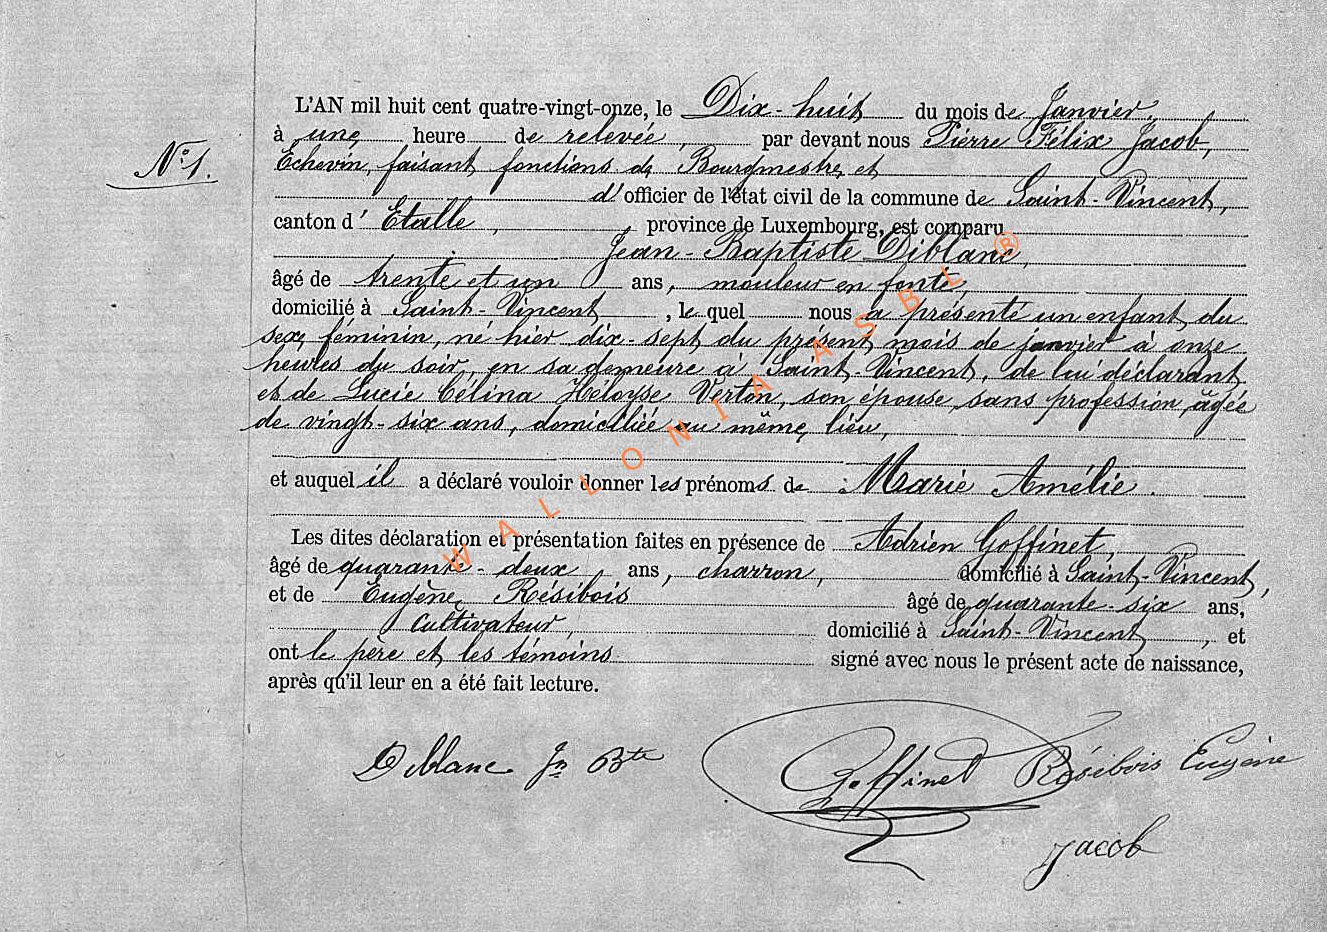 L'AN mil huit cent quatre-vingt-onze, le Dix-huit du mois de Janvier,
à une heure de relevée, par devant nous Pierre Félix Jacob,
N° 1.
Echevin, faisant fonctions de Bourgmestre et
d'officier de l'état civil de la commune de Saint-Vincent,
canton d'Etalle, province de Luxembourg, est comparu
Jean-Baptiste Diblanc,
âgé de trente et un ans, mouleur en fonte,
domicilié à Saint-Vincent, le quel nous a présenté un enfant du
sexe féminin, né hier dix-sept du présent mois de janvier à onze
heures du soir, en sa demeure à Saint-Vincent, de lui déclarant
et de Lucie Célina Héloyse Verton, son épouse, sans profession, âgée
de vingt-six ans, domiciliée au même lieu,
et auquel il a déclaré vouloir donner les prénoms de Marie Amélie.
Les dites déclaration et présentation faites en présence de Adrien Goffinet,
âgé de quarante-deux ans, charron, domicilié à Saint-Vincent,
et de Eugène Résibois âgé de quarante-six ans,
Cultivateur, domicilié à Saint-Vincent, et
ont le père et les témoins signé avec nous le présent acte de naissance,
après qu'il leur en a été fait lecture.
Diblanc Jn Bte Goffinet Résibois Eugène
Jacob
WALLONIA ASBL ®